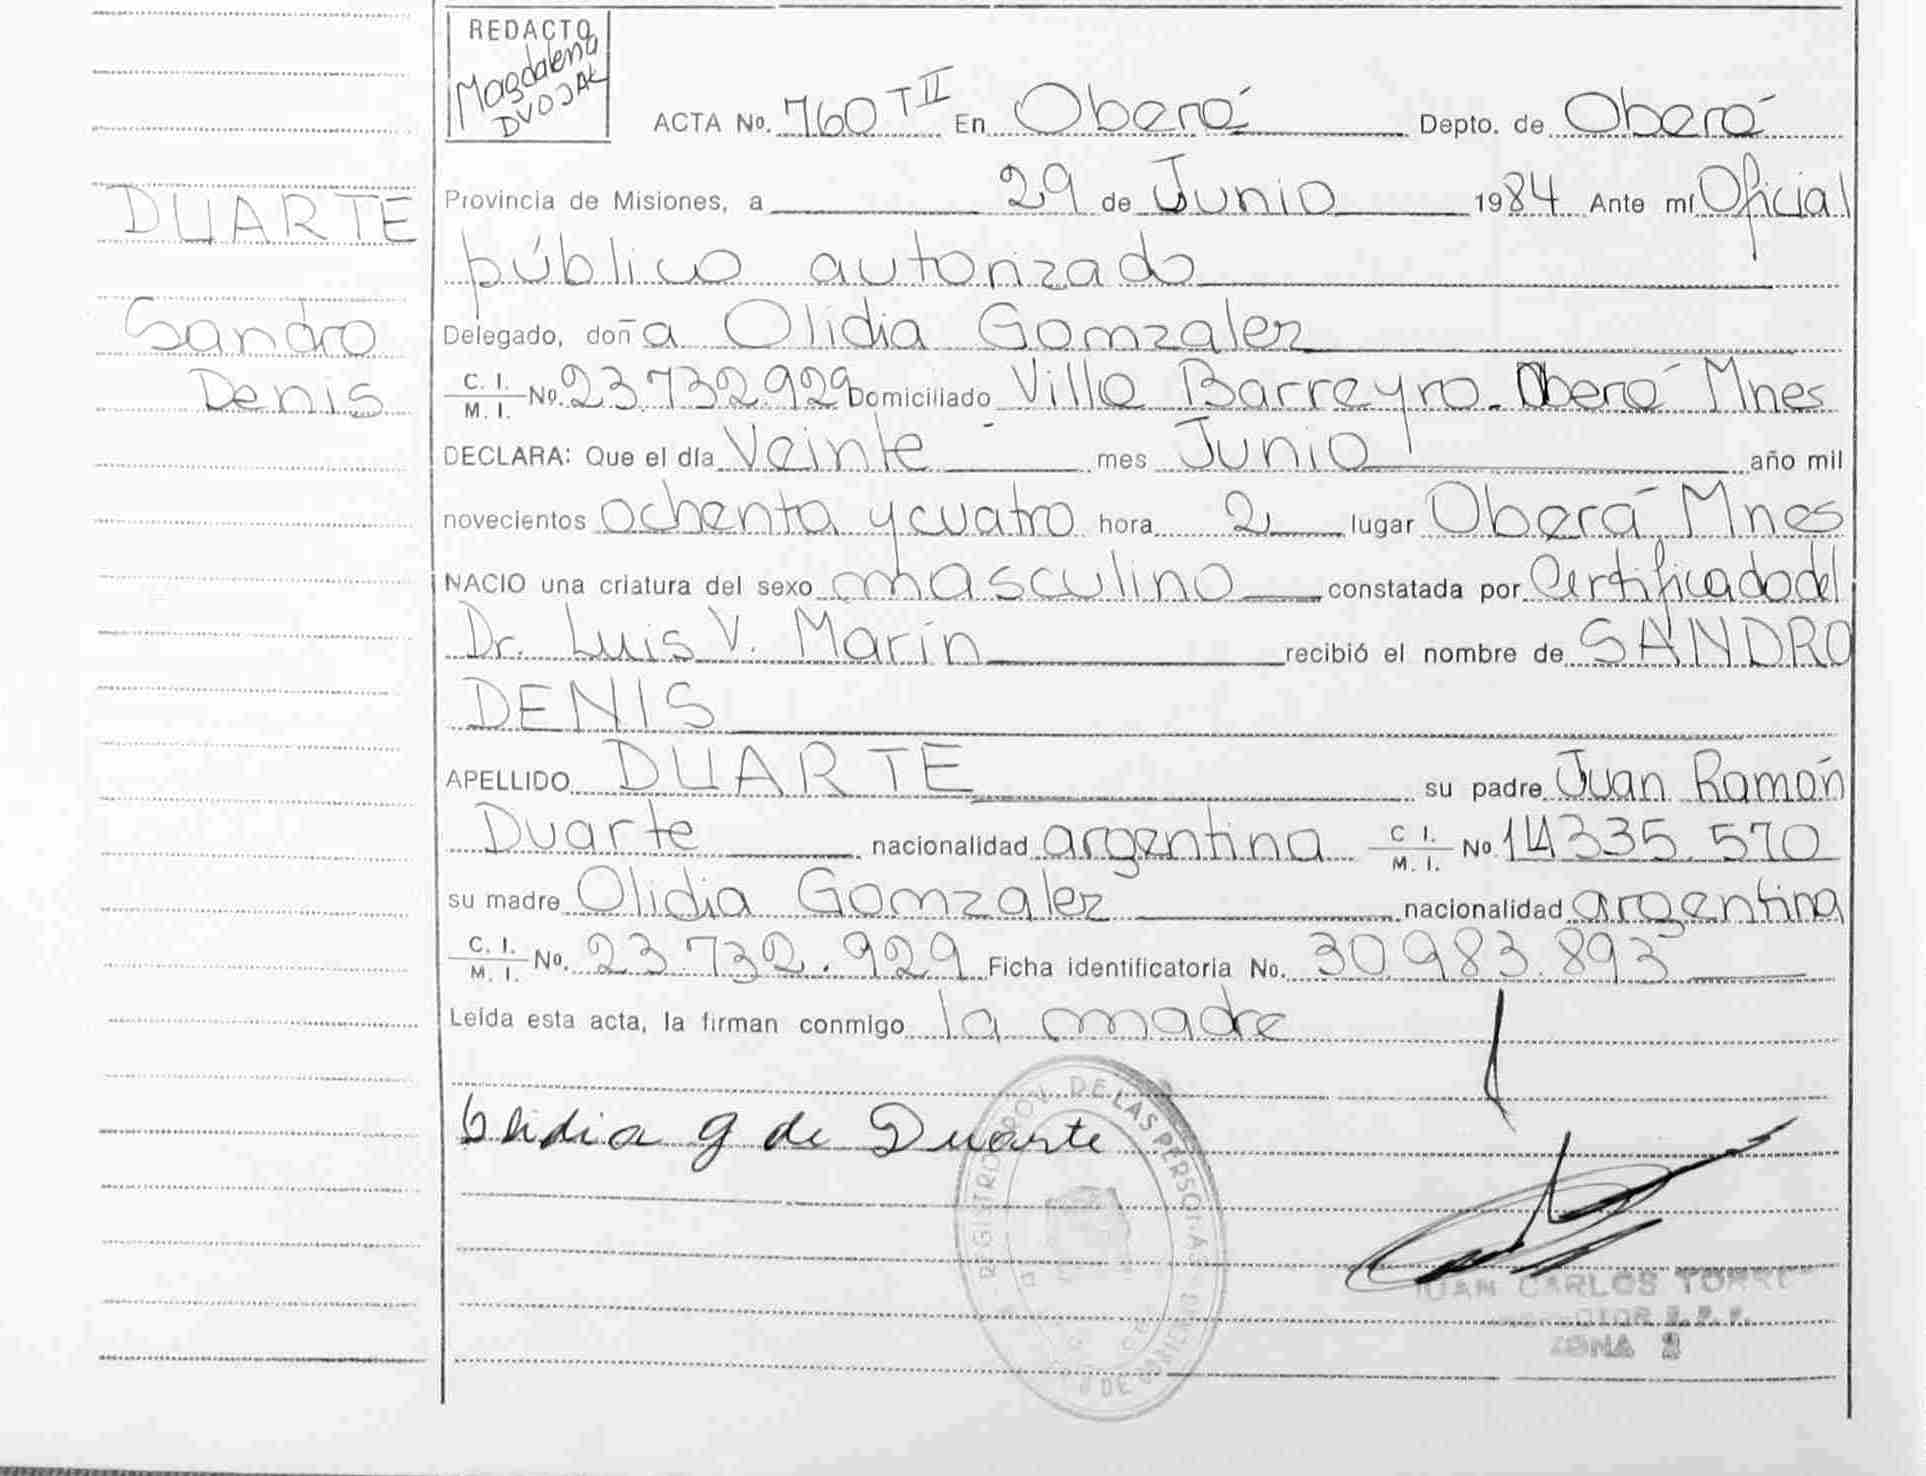 REDACTO
Magdalena
DVOJAK
ACTA No. 760 T II En Oberá Depto. de Oberá
DUARTE
Sandro
Denis
Provincia de Misiones, a 29 de Junio 1984 Ante mí Oficial
público autorizado
Delegado, doña Olidia Gomzalez
C. I. / M. I. No. 23.732.929 Domiciliado Villa Barreyro - Oberá Mnes
DECLARA: Que el día Veinte mes Junio año mil
novecientos ochenta y cuatro hora 2 lugar Oberá Mnes
NACIO una criatura del sexo masculino constatada por Certificado del
Dr. Luis V. Marin recibió el nombre de SANDRO
DENIS
APELLIDO DUARTE su padre Juan Ramón
Duarte nacionalidad argentina C. I. / M. I. No. 14335.570
su madre Olidia Gomzalez nacionalidad argentina
C. I. / M. I. No. 23.732.929 Ficha identificatoria No. 30.983.893
Leída esta acta, la firman conmigo la madre
Olidia g de Duarte
REGISTRO PROV. DE LAS PERSONAS
JUAN CARLOS TORRES
ZONA 2